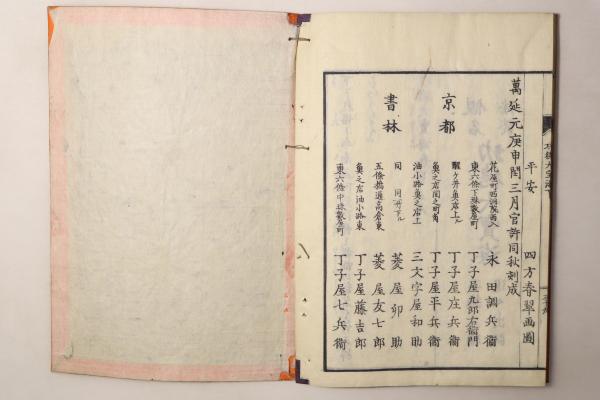 平安 四方春翠画圖
萬延元庚申閏三月官許同秋刻成
京都
書林
花屋町西洞院西入 永田調兵衞
東六條下珠數屋町 丁子屋九郎右衞門
醒ケ井魚店上ル 丁子屋庄兵衞
魚之店 丁子屋平兵衞
油小路魚之店上 三文字屋和助
同 菱屋卯助
五條橋通高倉東 菱屋友七郎
魚之店油小路東 丁子屋藤吉郎
東六條中珠數屋町 丁子屋七兵衞